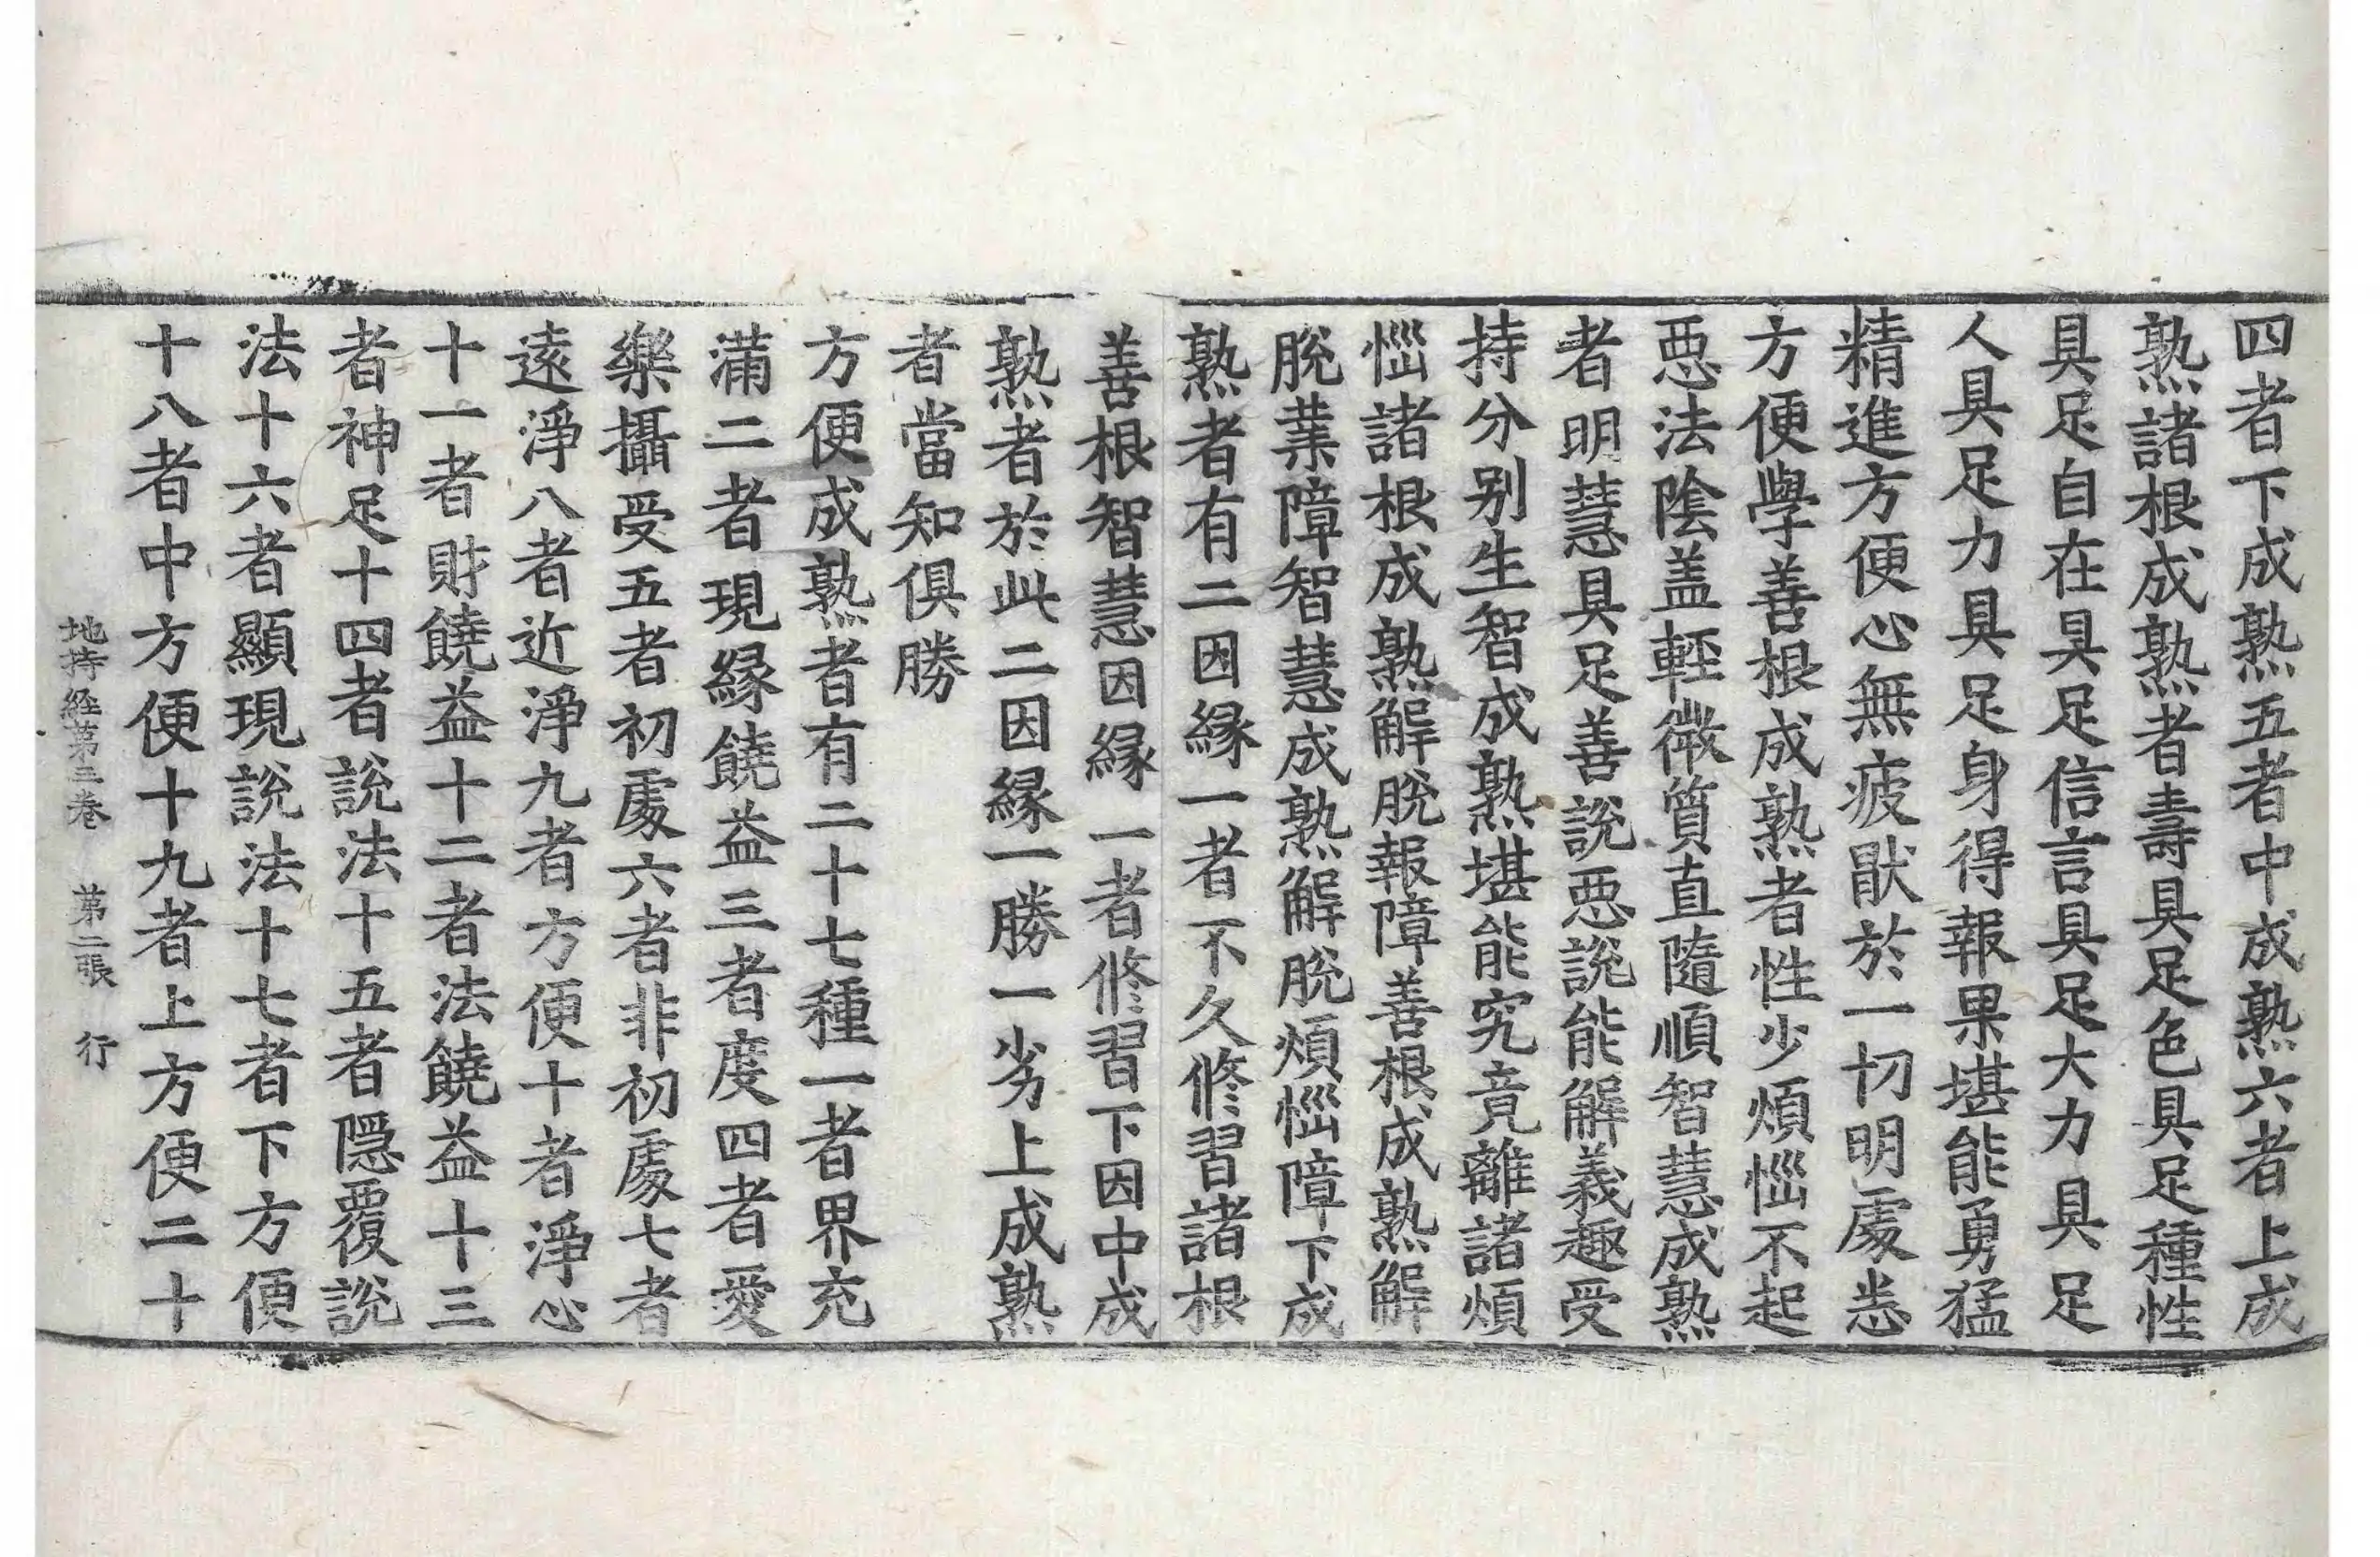 四者下成熟五者中成熟六者上成
熟諸根成熟者壽具足色具足種性
具足自在具足信言具足大力具足
人具足力具足身得報果堪能勇猛
精進方便心無疲猒於一切明處悉
方便學善根成熟者性少煩惱不起
惡法陰盖輕微質直隨順智慧成熟
者明慧具足善說惡說能解義趣受
持分別生智成熟堪能究竟離諸煩
惱諸根成熟解脫報障善根成熟解
脫業障智慧成熟解脫煩惱障下成
熟者有二因緣一者不久修習諸根
善根智慧因緣一者修習下因中成
熟者於此二因緣一勝一劣上成熟
者當知俱勝
方便成熟者有二十七種一者界充
滿二者現緣饒益三者度四者愛
樂攝受五者初處六者非初處七者
遠淨八者近淨九者方便十者淨心
十一者財饒益十二者法饒益十三
者神足十四者說法十五者隱覆說
法十六者顯現說法十七者下方便
十八者中方便十九者上方便二十
地持経第三卷 第二張 行